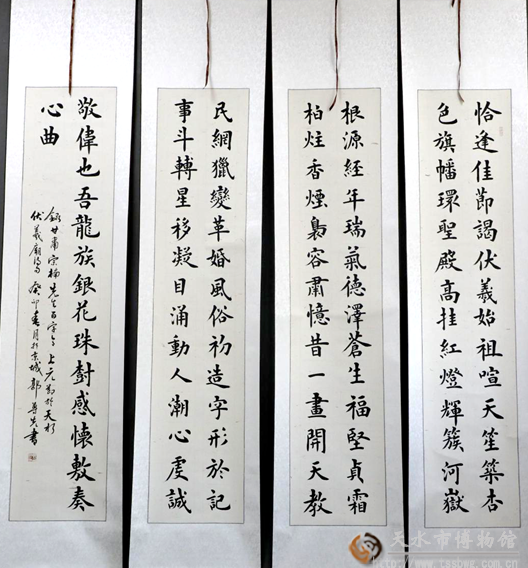 恰逢佳節謁伏羲始祖喧天笙築杏
色旗幡環聖殿高挂紅燈輝簇河嶽
根源經年瑞氣德澤蒼生福堅貞霜
柏炷香煙裊容肅憶昔一畫開天教
民網獵變革婚風俗初造字形於記
事斗轉星移凝目涌動人潮心虔誠
敬偉也吾龍族銀花珠樹感懷敷奏
心曲
甘肅宗楊先生百字令上元節於天水
伏羲廟 癸卯春月於京城 書
天水市博物馆
www.tssbwg.com.cn